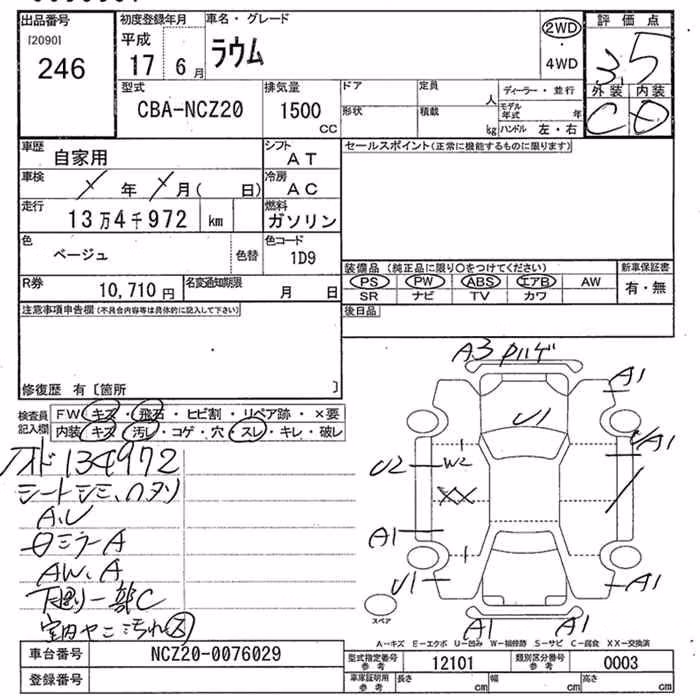 出品番号
[2090]
246
初度登録年月
平成
17 6 月
車名・グレード
ラウム
2WD
・
4WD
評価点
3.5
外装 内装
C D
型式
CBA-NCZ20
排気量
1500
CC
ドア
形状
定員
人
積載
kg
ディーラー・並行
モデル年式 年
ハンドル 左・右
車歴
自家用
シフト
AT
セールスポイント(正常に機能するものに限ります)
車検
年 月( 日)
冷房
AC
走行
13万4千972 km
燃料
ガソリン
色
ベージュ
色替
色コード
1D9
R券
10,710 円
名変通知期限
月 日
装備品 (純正品に限り○をつけてください)
PS PW ABS エアB AW
SR ナビ TV カワ
新車保証書
有・無
後日品
注意事項申告欄(不具合内容等は具体的に記入して下さい)
修復歴 有〔箇所 〕
検査員
記入欄
FW キズ・飛石・ヒビ割・リペア跡・×要
内装 キズ・汚レ・コゲ・穴・スレ・キレ・破レ
134972
シートシミ、ヘタリ
A.U
ミラーA
AW、A
下廻り一部C
室内ヤニ汚れ大
A3 ハゲ
A1
U1
UA1
U2
W2
XX
A1
U1
A1
A1
A1
スペア
A-キズ E-エクボ U-凹み W-補修跡 S-サビ C-腐食 XX-交換済
車台番号
NCZ20-0076029
登録番号
型式指定番号
参考
12101
類別区分番号
参考
0003
車庫証明用
参考
長さ cm
幅 cm
高さ cm